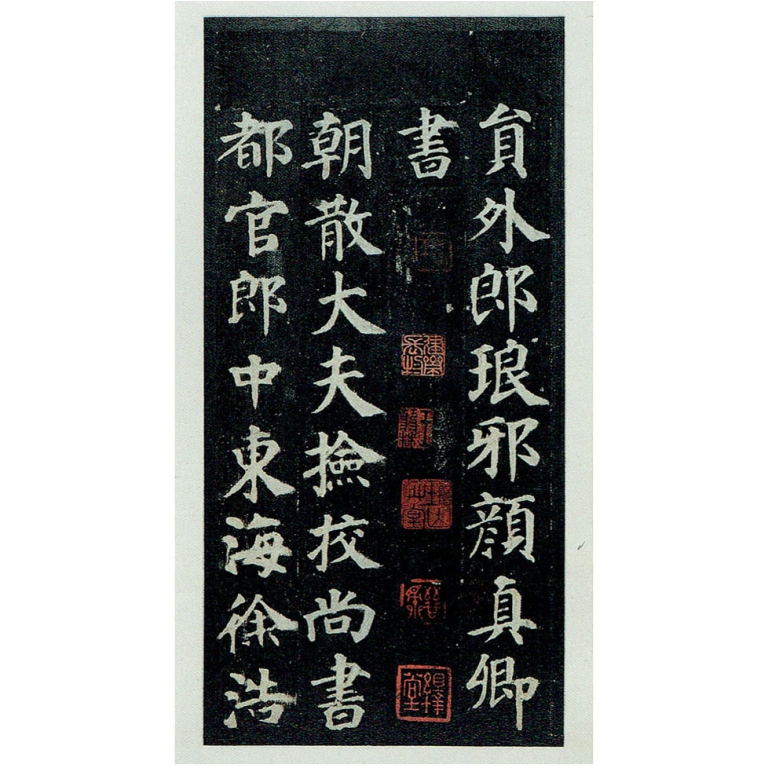 貟外郎琅邪顔真卿
書
朝散大夫撿挍尚書
都官郎中東海徐浩